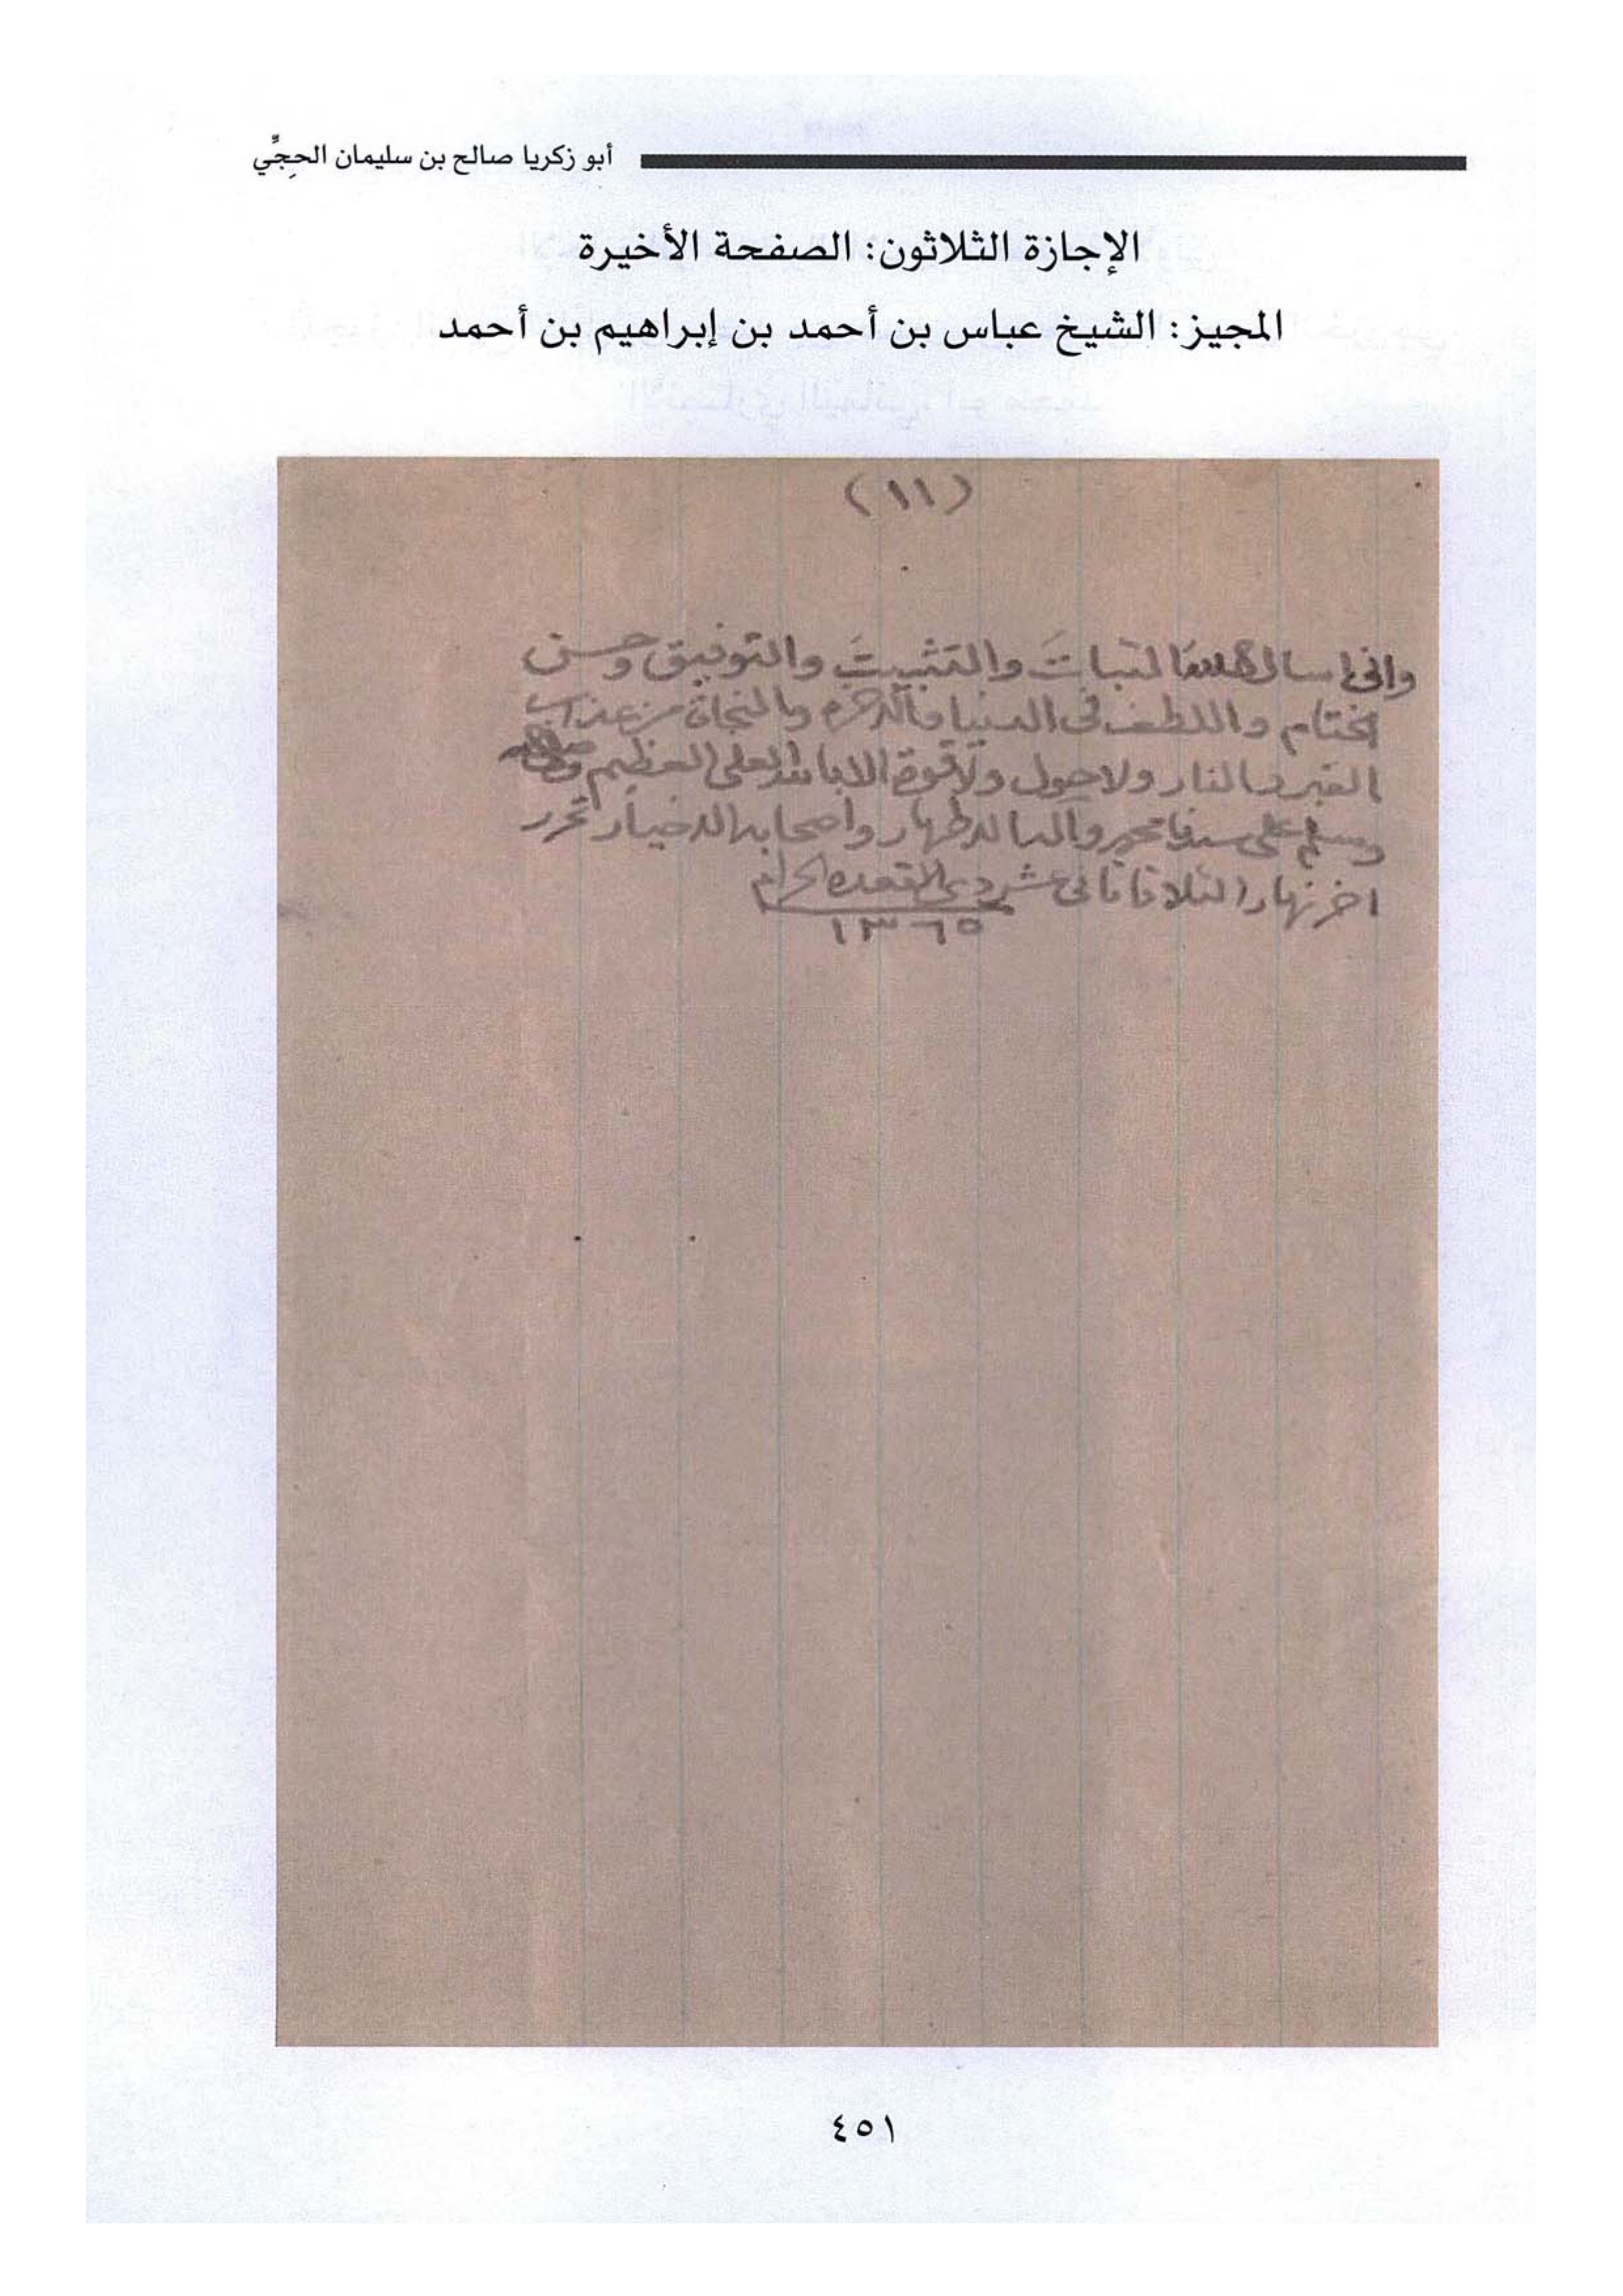 أبو زكريا صالح بن سليمان الحجِّي
الإجازة الثلاثون: الصفحة الأخيرة
المجيز: الشيخ عباس بن أحمد بن إبراهيم بن أحمد
(١١)
وانى اسال الله الثباتَ والتثبيتَ والتوفيق وحسن
الختام واللطف فى الدنيا والاخره والنجاة من عذاب
القبر والنار ولا حول ولا قوة الا بالله العلى العظيم
وسلم على سيدنا محمد وآله الاطهار واصحابه الاخيار تحرر
اخر نهار الثلاثا ثانى عشر ذى القعده الحرام
١٣٦٥
٤٥١